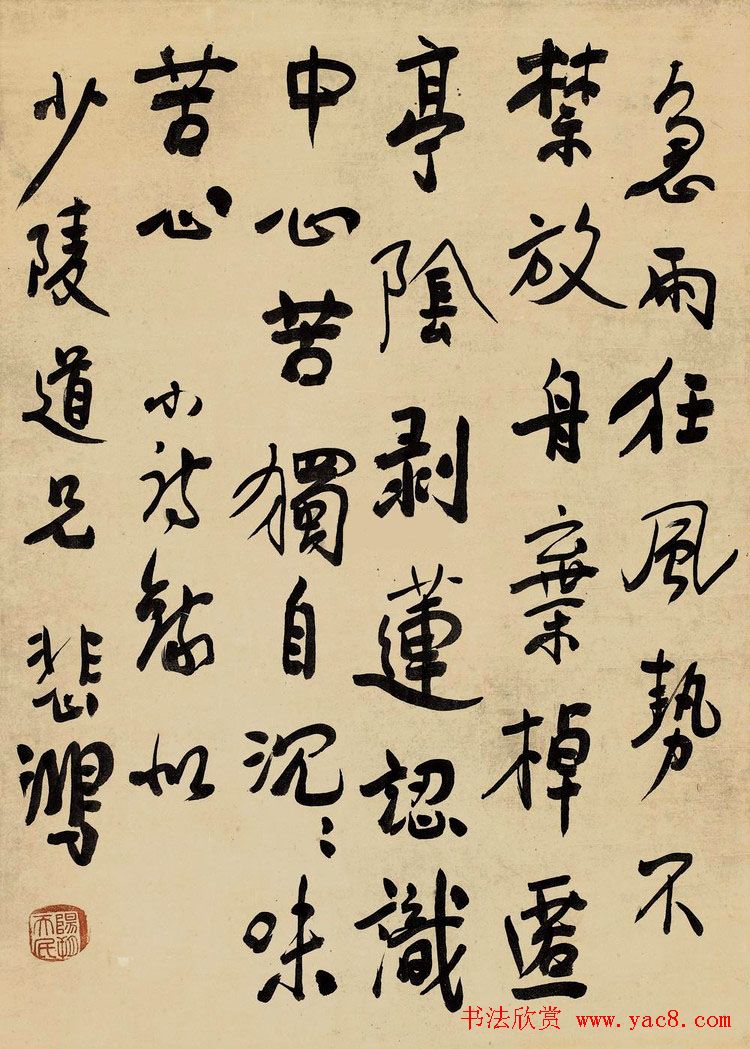 急雨狂風勢不
禁放舟棄棹匿
亭陰剥蓮認識
中心苦獨自沉〻味
苦心 小詩錄似
少陵道兄 悲鴻
陽朔天民
书法欣赏 www.yac8.com